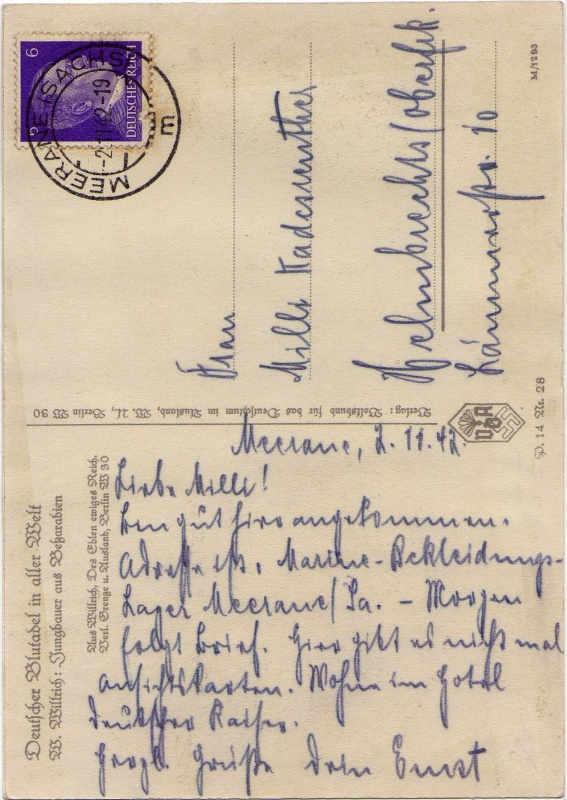 Deutscher Blutadel in aller Welt
W. Willrich: Jungbauer aus Beßarabien
Aus Willrich, Des Edlen ewiges Reich.
Verl. Grenze u. Ausland, Berlin W 30
Meerane, 2. 11. 42.
Liebe Milli!
Bin gut hier angekommen.
Adresse ist: Marine-Bekleidungs-
Lager Meerane/Sa. - Morgen
folgt Brief. Hier gibt es nicht mal
Ansichtskarten. Wohne im Hotel
Deutscher Kaiser.
Herzl. Grüße Dein Ernst
Verlag: Volksbund für das Deutschtum im Ausland, Berlin W 30
VDA
P. 14 Nr. 28
6 6
DEUTSCHES REICH
MEERANE (SACHS)
-2.11.42-19
m
Frau
Milli
Helmbrechts/Oberfrk.
10
M/1293